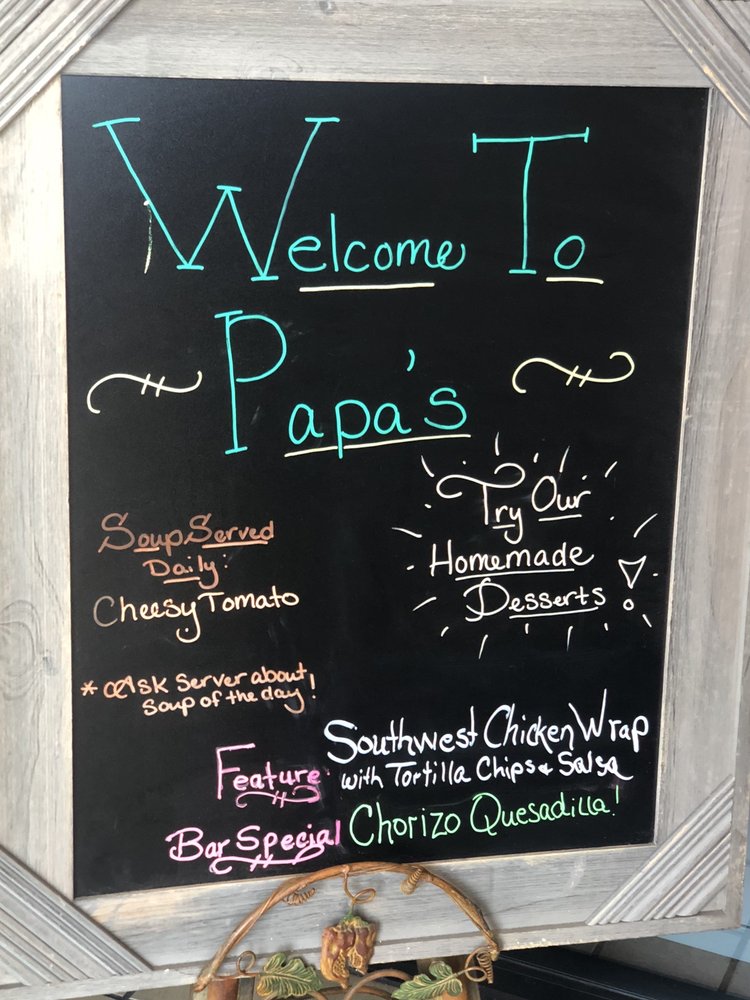 Welcome To
Papa's
Try Our
Homemade
Desserts!
Soup Served
Daily:
Cheesy Tomato
* Ask Server about
Soup of the day!
Feature Southwest Chicken Wrap
with Tortilla Chips & Salsa
Bar Special Chorizo Quesadilla!